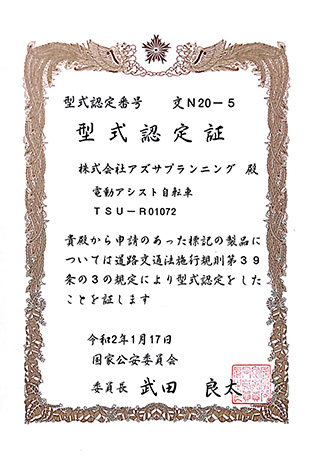 型式認定番号　文N20－5
型式認定証
株式会社アズサプランニング　殿
電動アシスト自転車
TSU－R01072
貴殿から申請のあった標記の製品に
ついては道路交通法施行規則第39
条の3の規定により型式認定をした
ことを証します
令和2年1月17日
国家公安委員会
委員長　武田　良太